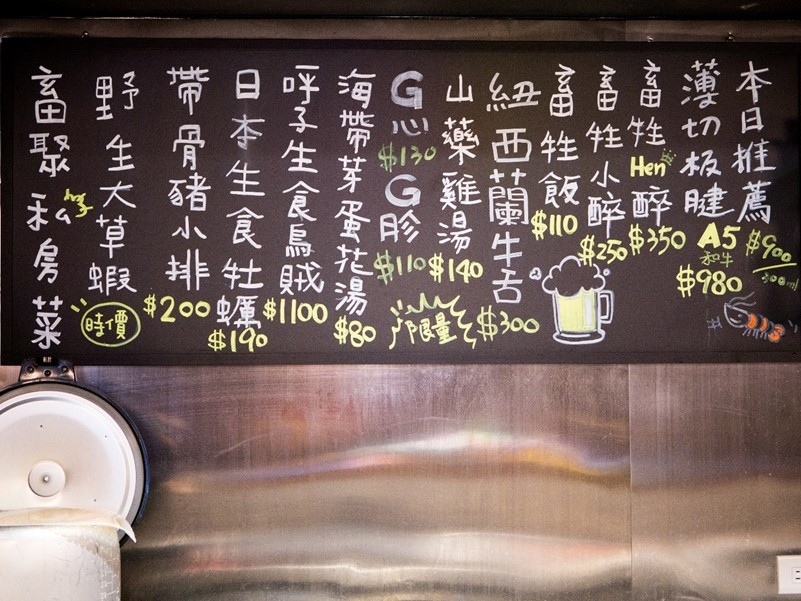 本日推薦
$900/300ml
薄切板腱
A5
和牛
$980
畜牲Hen醉
$350
畜牲小醉
$250
畜牲飯
$110
紐西蘭牛舌
$300
山藥雞湯
$140
G心
$130
G胗
$110
限量
海帶芽蛋花湯
$80
呼子生食烏賊
$1100
日本生食牡蠣
$190
帶骨豬小排
$200
野生大草蝦
時價
畜聚私房菜